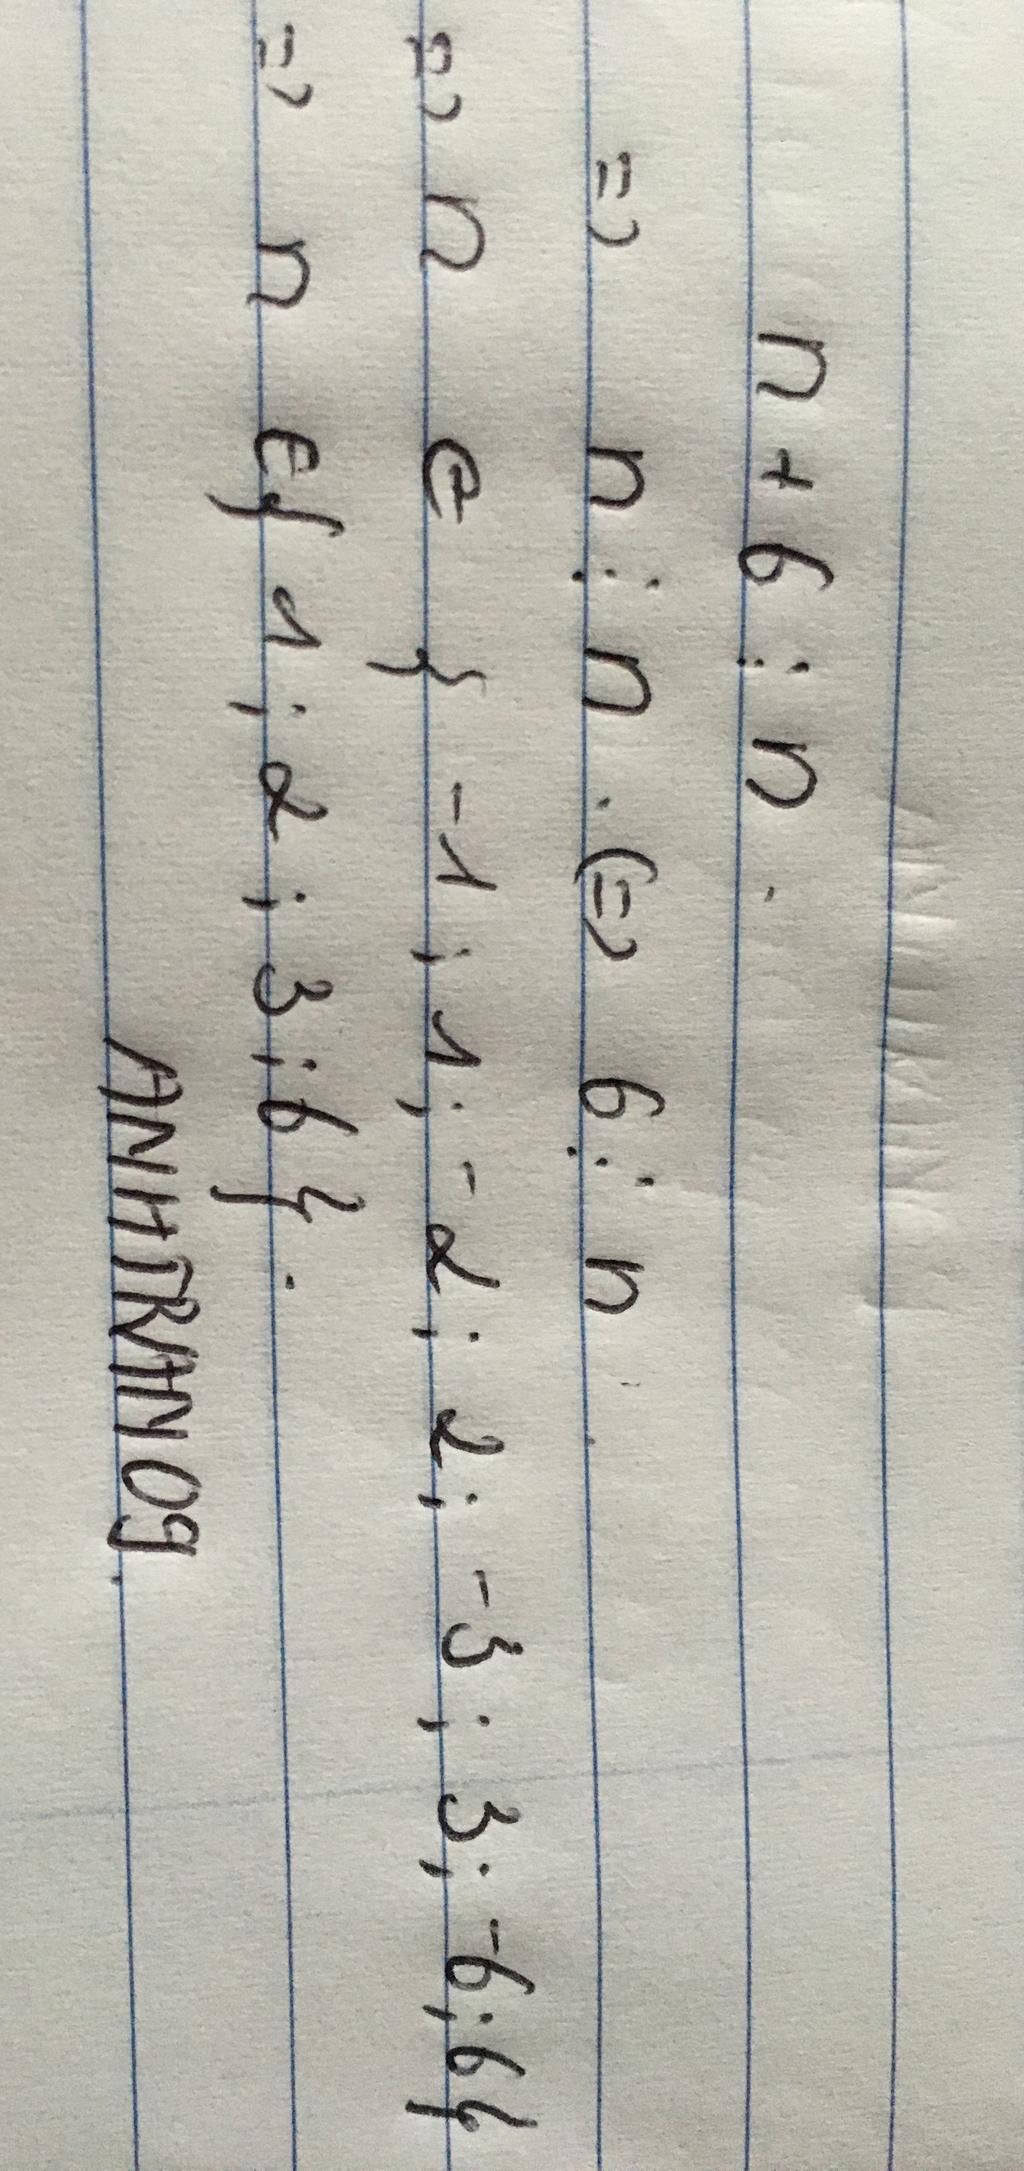 n + 6 ⋮ n.
=> n ⋮ n. (=> 6 ⋮ n
=> n ∈ { -1 ; 1 ; -2 ; 2 ; -3 ; 3 ; -6 ; 6 }
=> n ∈ { 1 ; 2 ; 3 ; 6 }.
ANHTRAN09.